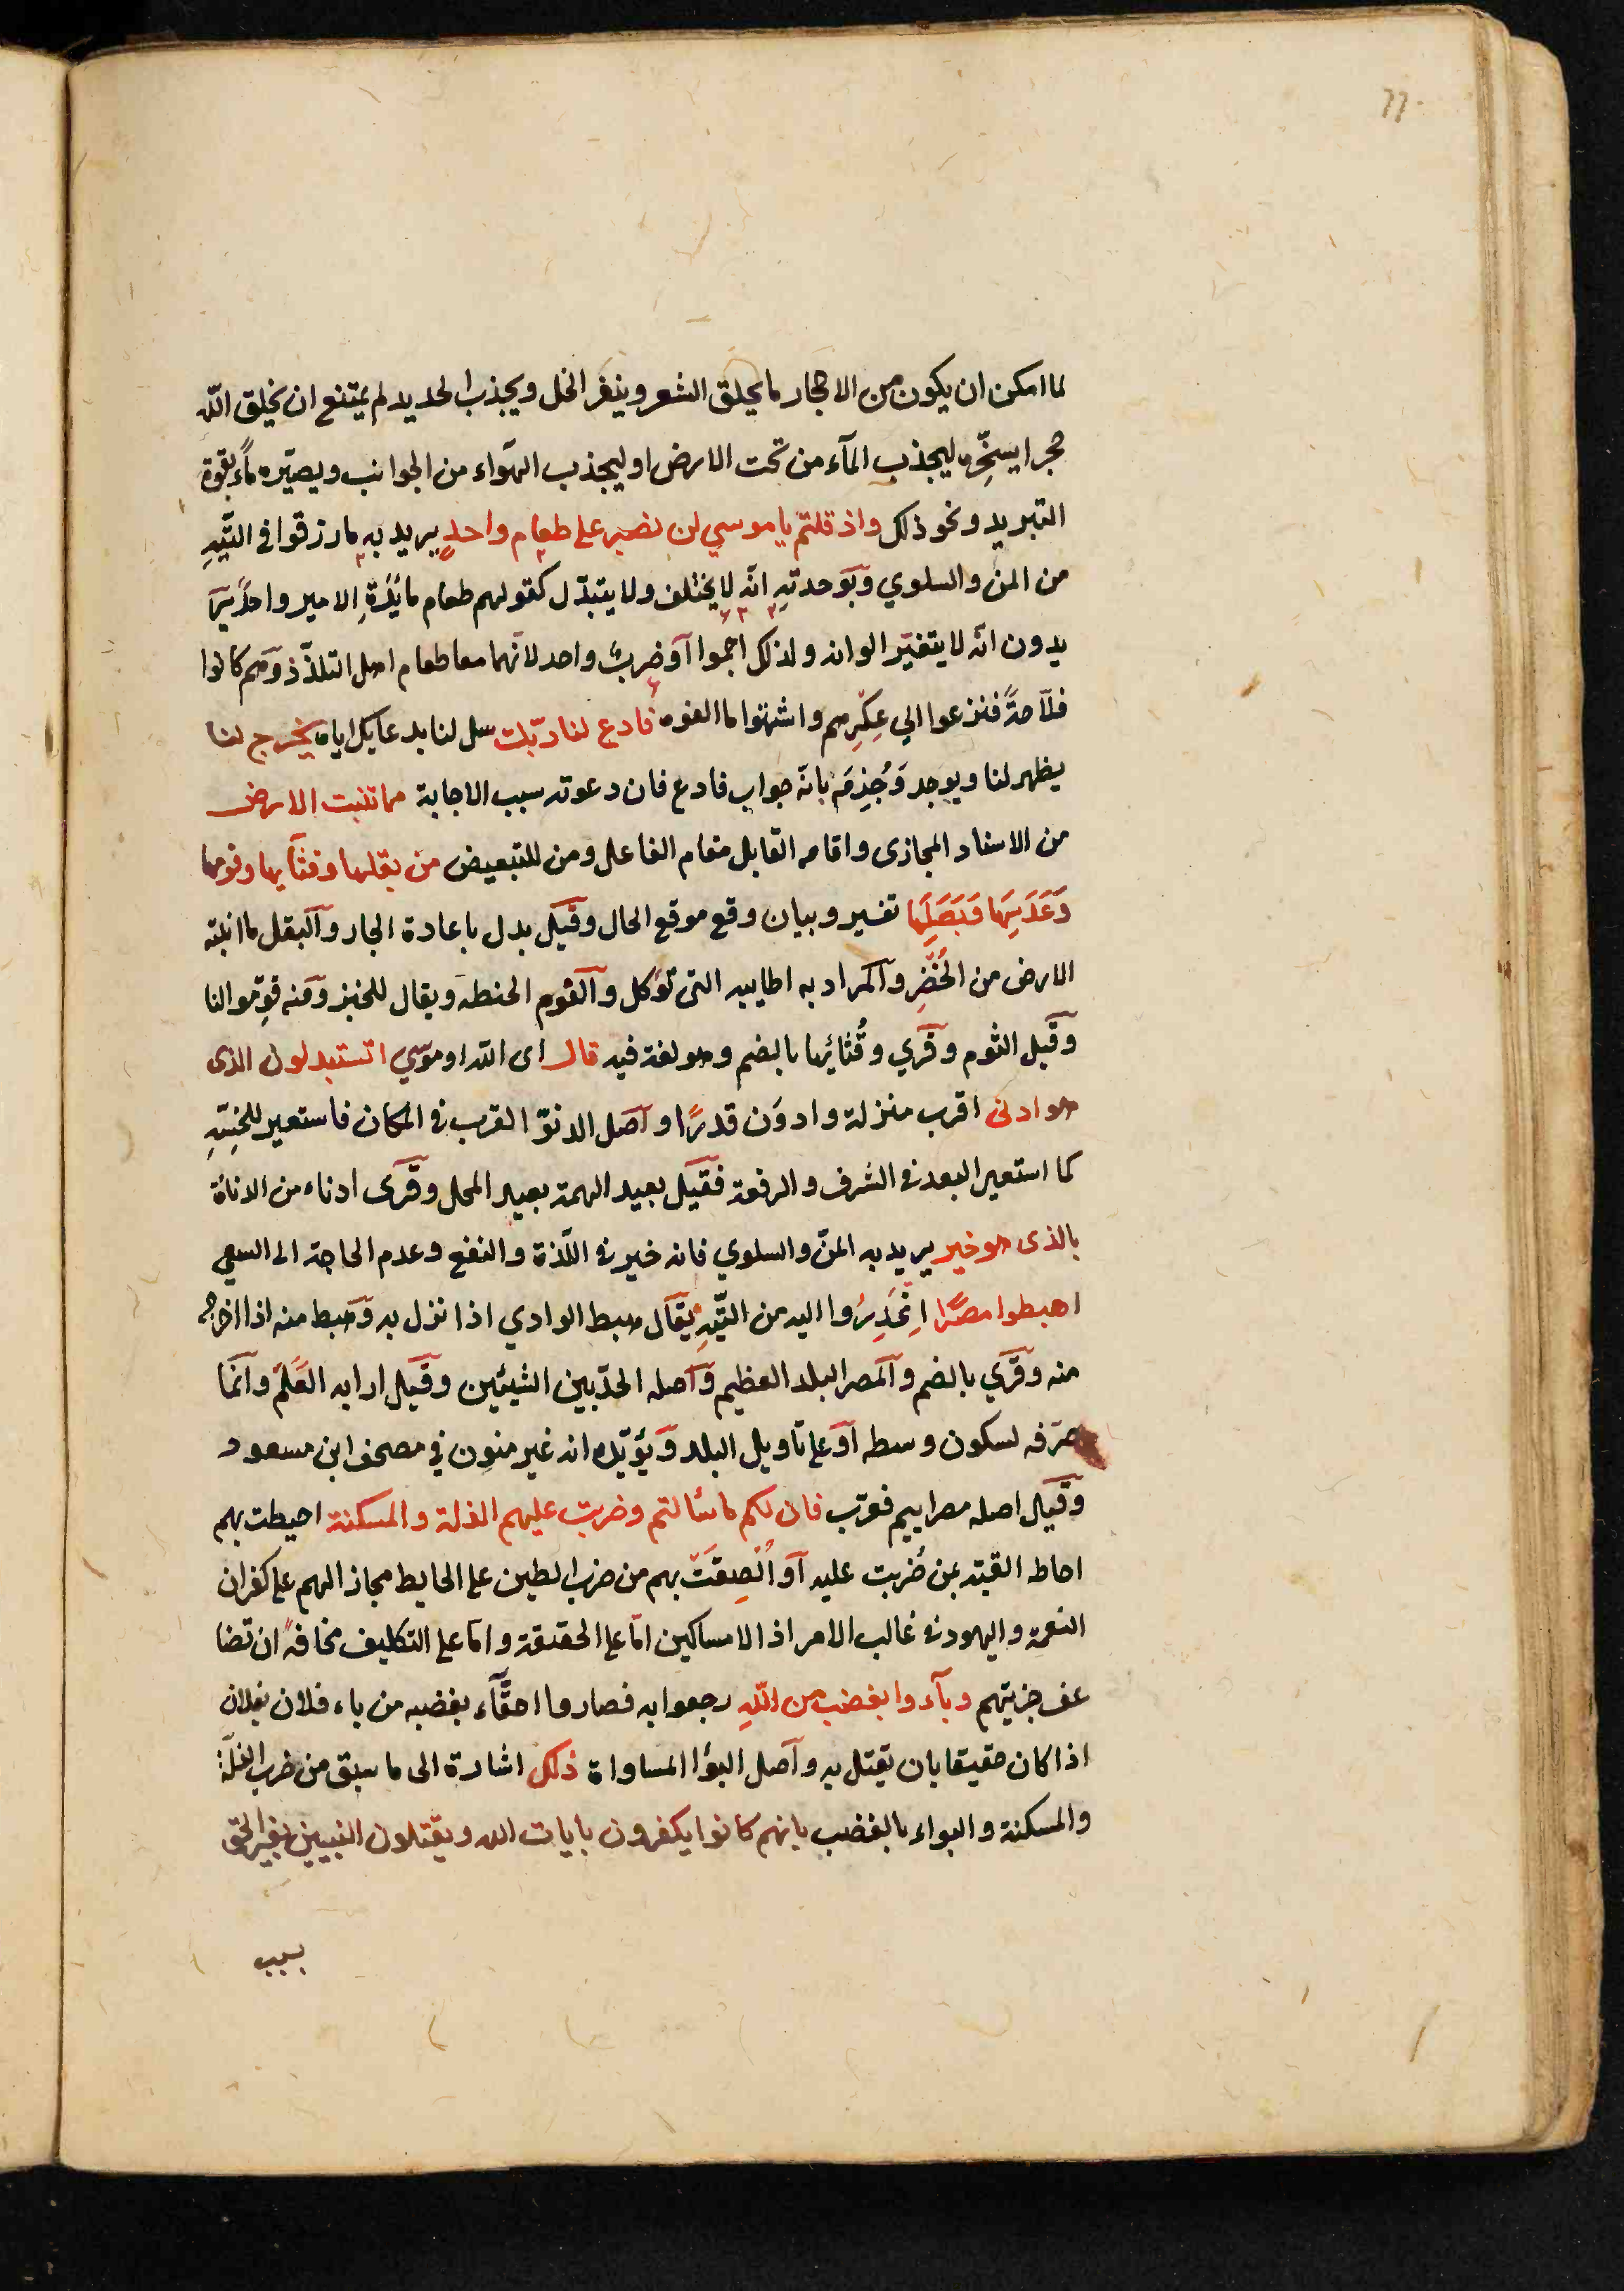 ٦٦
لما امكن ان يكون من الاحجار ما يحلق الشعر وينفر الخل ويجذب الحديد لم يمتنع ان يخلق الله
حجرا يسخّره ليجذب المآء من تحت الارض او ليجذب الهواء من الجوانب ويصيّره مآء بقوة
التبريد ونحو ذلك واذ قلتم يا موسي لن نصبر على طعام واحدٍ يريد به ما رزقوا في التّيهِ
من المن والسلوي وبوحدتهِ انه لا يختلف ولا يتبدّل كقولهم طعام مائدةِ الامير واحدٌ ير
يدون انه لا يتغيّر الوانه ولذلك اجموا آو ضربٌ واحد لانهما معا طعام اهل التلذّذ وهم كانوا
فلاحةً فنزعوا الي عِكْرِهم واشتهوا ما الفوه فادع لنا ربّك سل لنا بدعائك اياه يخرج لنا
يظهر لنا ويوجد وجُزِمَ بانه جواب فادع فان دعوته سبب الاجابة مما تنبت الارض
من الاسناد المجازى واقامه القابل مقام الفاعل ومن للتبعيض من بقلها وقثّآيها وفومها
وَعَدَسِهَا وَبَصَلِهَا تفسير وبيان وقع موقع الحال وقيل بدل باعادة الجار والبقل ما انبته
الارض من الخُضَرِ والمراد به اطايبه التى تؤكل والفوم الحنطه ويقال للخبز ومنه فوّموا لنا
وقيل الثوم وقري وقُثائها بالضم وهو لغة فيه قال اى الله او موسي اتستبدلون الذى
هو ادنى اقرب منزلة وادوَن قدرًا واصل الدنوّ القرب في المكان فاستعير للخسّةِ
كما استعير البعد في الشرف والرفعة فقيل بعيد الهمة بعيد المحل وقرى ادناء من الدناءة
بالذى هو خير يريد به المنّ والسلوي فانه خير في اللّذة والنفع وعدم الحاجة الى السعي
اهبطوا مصرًا انحَدِرُوا اليه من التّيهِ يقال هبط الوادي اذا نزل به وهبط منه اذا اخرج
منه وقري بالضم والمصر البلد العظيم واصله الحدّ بين الشيئين وقيل اراد به العَلَمَ وانما
صرّفه لسكون وسطه آو على تأويل البلد ويؤيّده انه غير منون في مصحف ابن مسعود
وقيل اصله مصراييم فعرّب فان لكم ما سألتم وضربت عليهم الذلة والمسكنة احيطت بهم
احاط القبّه بمن ضُربت عليه آو اُلصِقَتْ بهم من ضرب الطين على الحايط مجازا لهم على كفران
النعمة واليهود في غالب الامر اذلا مساكين امّا على الحقيقة وامّا على التكليف مخافةً ان تضا
عف جزيتهم وبآءوا بغضب من اللهِ رجعوا به فصاروا احقّآء بغضبه من باء فلان بفلان
اذا كان حقيقا بان يقتل به واصل البؤا المساواة ذلك اشارة الى ما سبق من ضرب الذلّة
والمسكنة والبواء بالغضب بانهم كانوا يكفرون بايات الله ويقتلون النبيين بغير الحق
بسبب